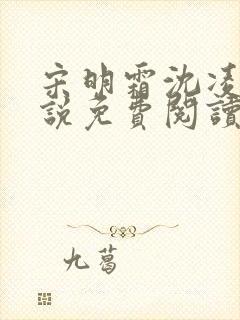 宋明霜沈凌
說免費閱讀
九葛